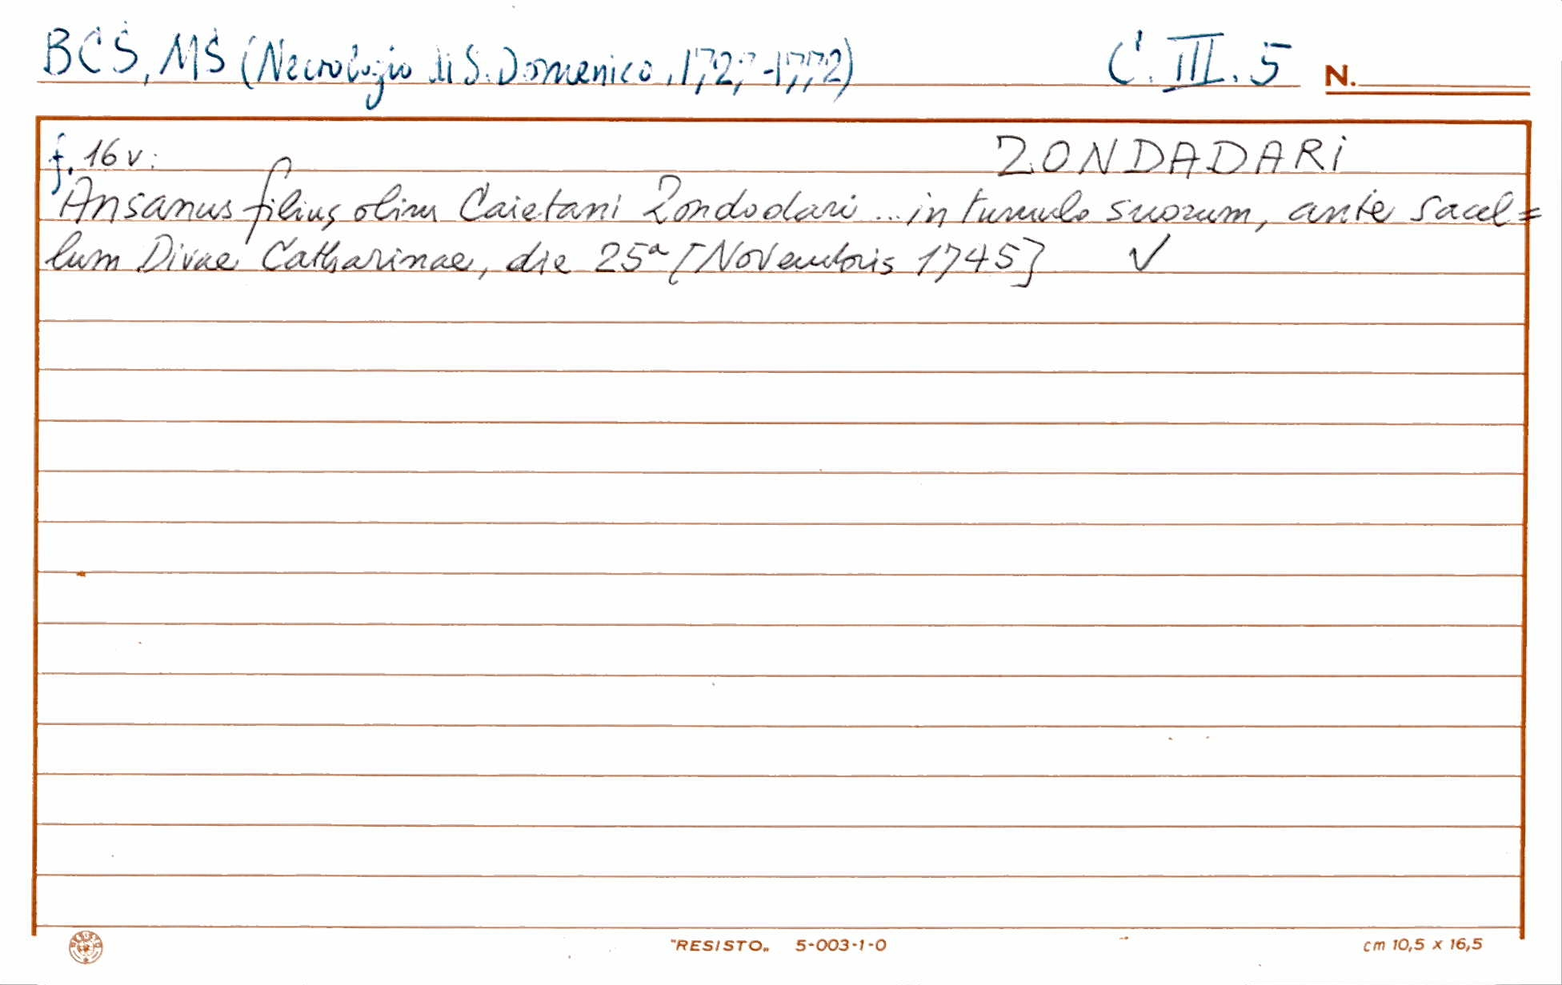 BCS, MS (Necrologio di S. Domenico, 1727-1772) C. III. 5 N.
f. 16v: ZONDADARI
Ansanus filius olim Caietani Zondadari ... in tumulo suorum, ante sacel=
lum Divae Catharinae, die 25ª [Novembris 1745] ✓
RESISTO
"RESISTO„ 5-003-1-0 cm 10,5 x 16,5